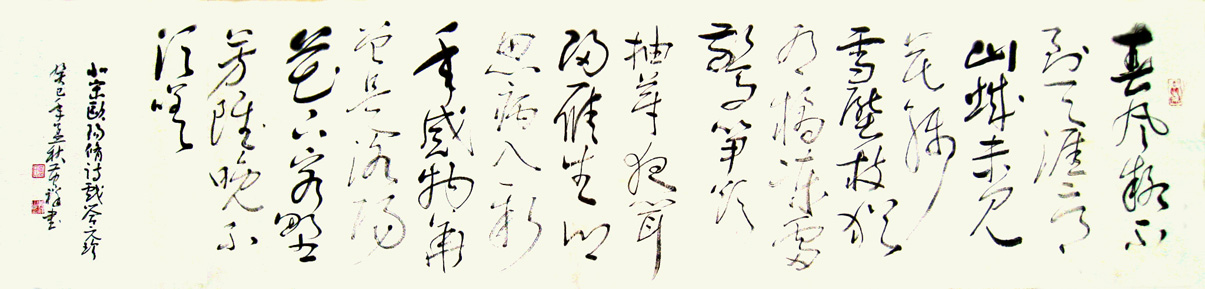 春风疑不
到天涯二月
山城未见
花残
雪压枝犹
有橘冻雷
惊笋欲
抽芽夜闻
归雁生乡
思病入新
年感物华
曾是洛阳
花下客野
芳虽晚不
须嗟
北宋欧阳修诗戏答元珍
癸巳年孟秋书